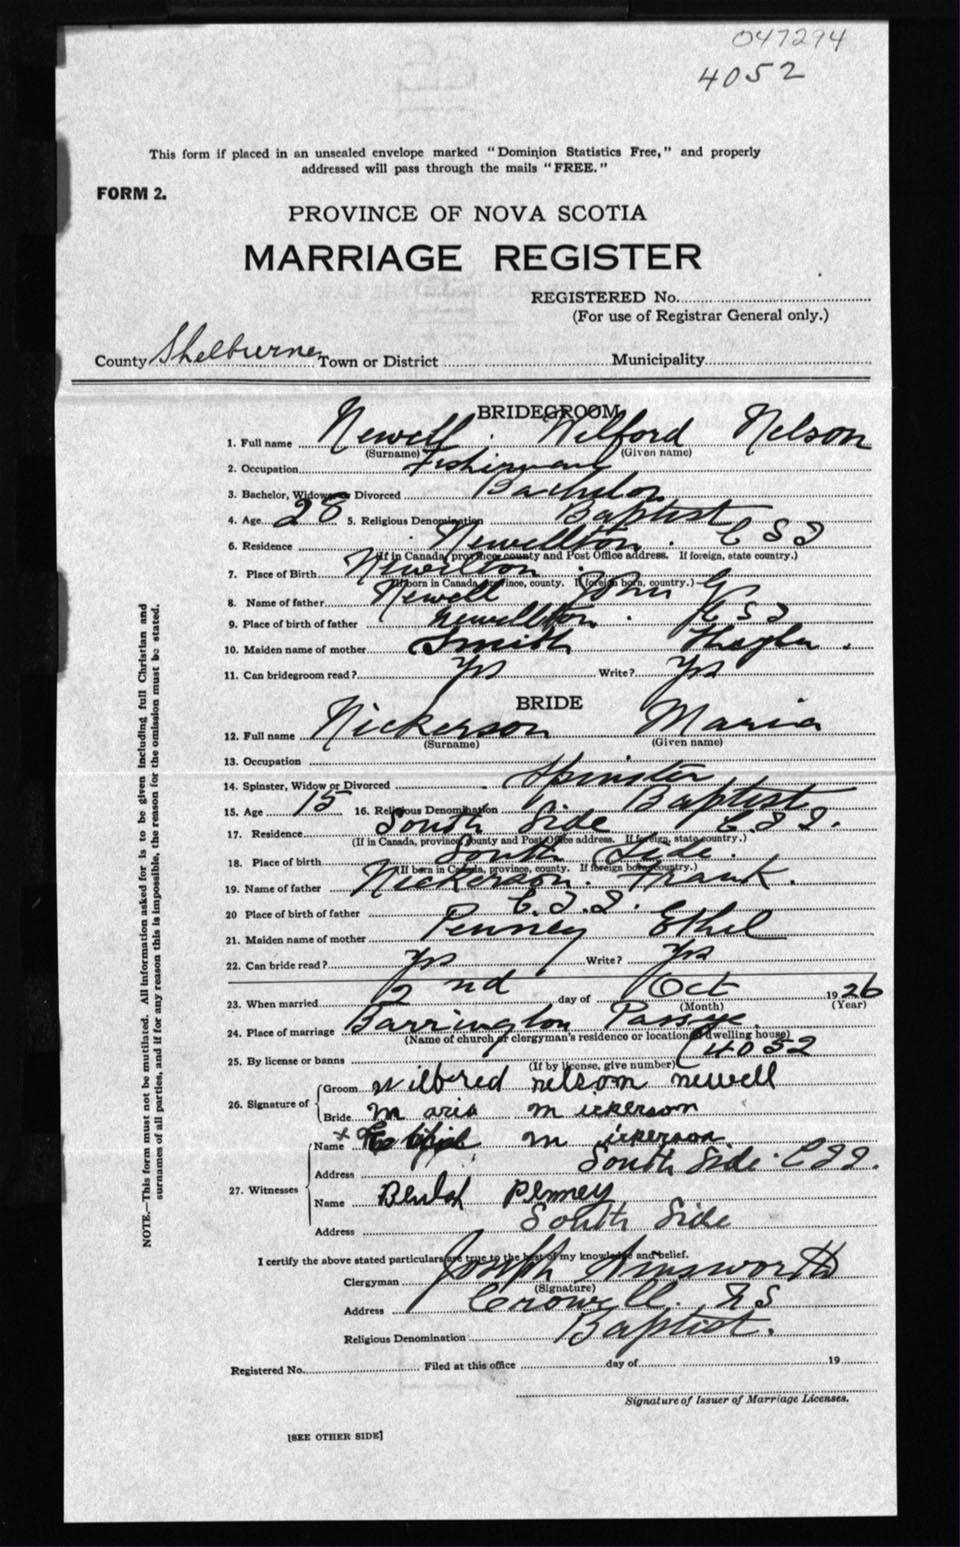 047294
4052
This form if placed in an unsealed envelope marked "Dominion Statistics Free," and properly
addressed will pass through the mails "FREE."
FORM 2.
PROVINCE OF NOVA SCOTIA
MARRIAGE REGISTER
REGISTERED No.
(For use of Registrar General only.)
County Shelburne Town or District Municipality
BRIDEGROOM
1. Full name Newell Wilford Nelson
(Surname) (Given name)
2. Occupation Fisherman
3. Bachelor, Widower or Divorced Bachelor
4. Age 28 5. Religious Denomination Baptist
6. Residence Newellton. C S I
(If in Canada, province county and Post Office address. If foreign, state country.)
7. Place of Birth Newellton
(If born in Canada, province, county. If foreign born, country.)
8. Name of father Newell John
9. Place of birth of father Newellton. C S I
10. Maiden name of mother Smith
11. Can bridegroom read? Yes Write? Yes
BRIDE
12. Full name Nickerson Maria
(Surname) (Given name)
13. Occupation
14. Spinster, Widow or Divorced Spinster
15. Age 15 16. Religious Denomination Baptist
17. Residence South Side C.S.I.
(If in Canada, province, county and Post Office address. If foreign, state country.)
18. Place of birth South Side.
(If born in Canada, province, county. If foreign born, country.)
19. Name of father Nickerson. Frank.
20 Place of birth of father C.S.I.
21. Maiden name of mother Penney Ethel
22. Can bride read? Yes Write? Yes
23. When married 2nd day of Oct 1926
(Month) (Year)
24. Place of marriage Barrington Passage.
(Name of church or clergyman's residence or location of dwelling house)
25. By license or banns 4052
(If by license, give number)
26. Signature of Groom Wilbered nelsom newell
Bride Maria Nickerson
27. Witnesses Name X Nickerson.
Address South Side. C S I.
Name Beulah Penney
Address South Side
I certify the above stated particulars are true to the best of my knowledge and belief.
Clergyman Joseph Ainsworth
(Signature)
Address Crowell. N S
Religious Denomination Baptist.
Registered No. Filed at this office day of 19
Signature of Issuer of Marriage Licenses.
[SEE OTHER SIDE]
NOTE.—This form must not be mutilated. All information asked for is to be given including full Christian and
surnames of all parties, and if for any reason this is impossible, the reason for the omission must be stated.